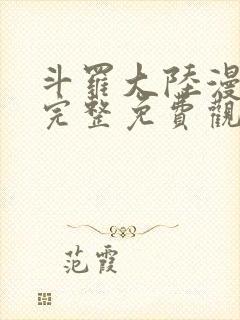 斗羅大陸漫
完整免費觀
范霞